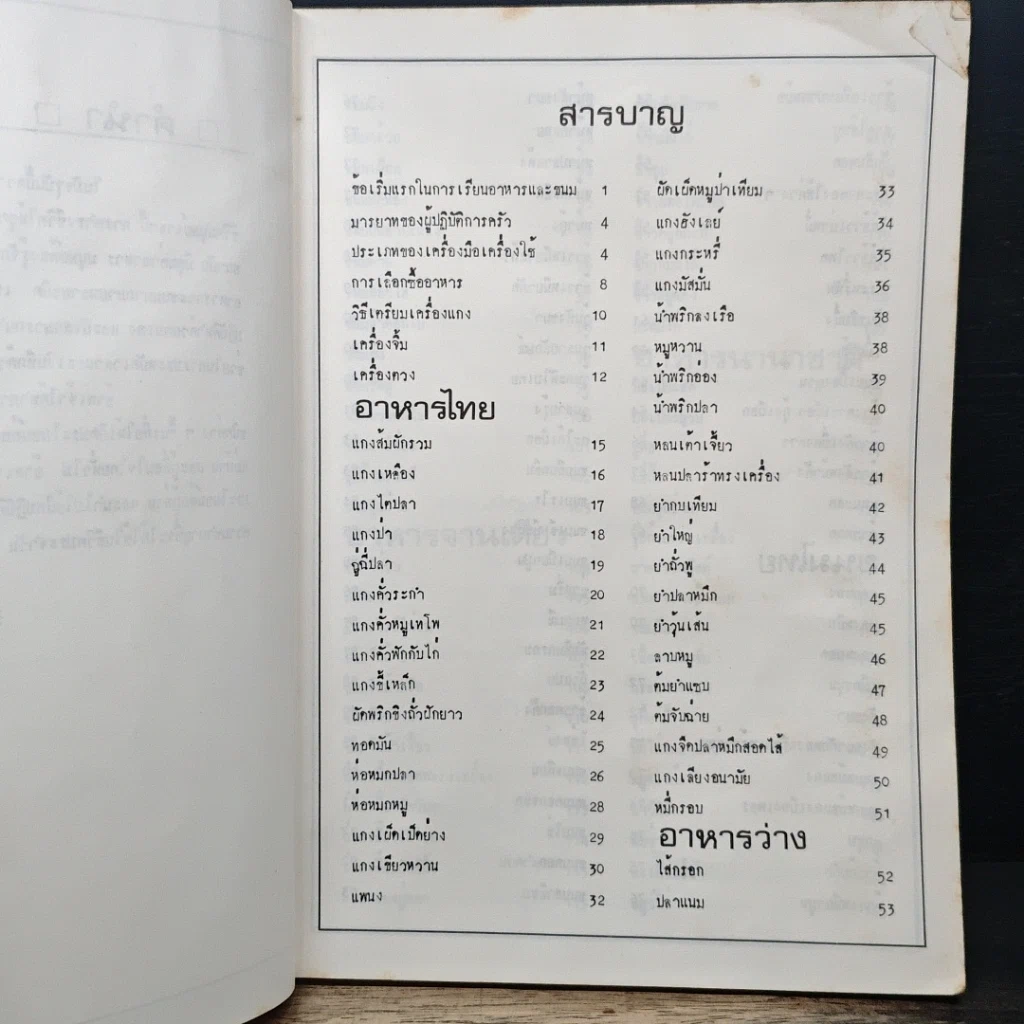 คำนำ
สารบาญ
ข้อเริ่มแรกในการเรียนอาหารและขนม 1
มารยาทของผู้ปฏิบัติการครัว 4
ประเภทของเครื่องมือเครื่องใช้ 4
การเลือกซื้ออาหาร 8
วิธีเตรียมเครื่องแกง 10
เครื่องจิ้ม 11
เครื่องตวง 12
อาหารไทย
แกงส้มผักรวม 15
แกงเหลือง 16
แกงไตปลา 17
แกงป่า 18
ฉู่ฉี่ปลา 19
แกงคั่วระกำ 20
แกงคั่วหมูเทโพ 21
แกงคั่วฟักกับไก่ 22
แกงขี้เหล็ก 23
ผัดพริกขิงถั่วฝักยาว 24
ทอดมัน 25
ห่อหมกปลา 26
ห่อหมกหมู 28
แกงเผ็ดเป็ดย่าง 29
แกงเขียวหวาน 30
แพนง 32
ผัดเผ็ดหมูป่าเทียม 33
แกงฮังเลย์ 34
แกงกระหรี่ 35
แกงมัสมั่น 36
น้ำพริกลงเรือ 38
หมูหวาน 38
น้ำพริกอ่อง 39
น้ำพริกปลา 40
หลนเต้าเจี้ยว 40
หลนปลาร้าทรงเครื่อง 41
ยำกบเทียม 42
ยำใหญ่ 43
ยำถั่วพู 44
ยำปลาหมึก 45
ยำวุ้นเส้น 45
ลาบหมู 46
ต้มยำแซบ 47
ต้มจับฉ่าย 48
แกงจืดปลาหมึกสอดไส้ 49
แกงเลียงอนามัย 50
หมี่กรอบ 51
อาหารว่าง
ไส้กรอก 52
ปลาแนม 53